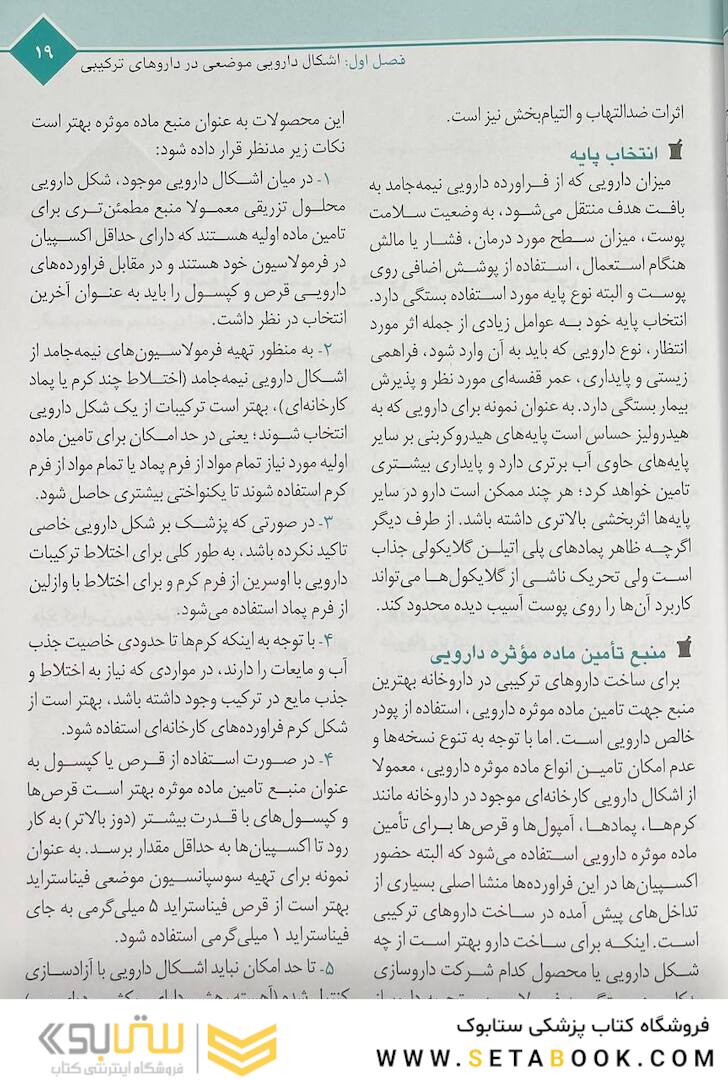 ۱۹
فصل اول: اشکال دارویی موضعی در داروهای ترکیبی
اثرات ضدالتهاب و التیام‌بخش نیز است.
انتخاب پایه
میزان دارویی که از فرآورده دارویی نیمه‌جامد به
بافت هدف منتقل می‌شود، به وضعیت سلامت
پوست، میزان سطح مورد درمان، فشار یا مالش
هنگام استعمال، استفاده از پوشش اضافی روی
پوست و البته نوع پایه مورد استفاده بستگی دارد.
انتخاب پایه خود به عوامل زیادی از جمله اثر مورد
انتظار، نوع دارویی که باید به آن وارد شود، فراهمی
زیستی و پایداری، عمر قفسه‌ای مورد نظر و پذیرش
بیمار بستگی دارد. به عنوان نمونه برای دارویی که به
هیدرولیز حساس است پایه‌های هیدروکربنی بر سایر
پایه‌های حاوی آب برتری دارد و پایداری بیشتری
تامین خواهد کرد؛ هر چند ممکن است دارو در سایر
پایه‌ها اثربخشی بالاتری داشته باشد. از طرف دیگر
اگرچه ظاهر پمادهای پلی اتیلن گلایکولی جذاب
است ولی تحریک ناشی از گلایکول‌ها می‌تواند
کاربرد آن‌ها را روی پوست آسیب دیده محدود کند.
منبع تأمین ماده مؤثره دارویی
برای ساخت داروهای ترکیبی در داروخانه بهترین
منبع جهت تامین ماده موثره دارویی، استفاده از پودر
خالص دارویی است. اما با توجه به تنوع نسخه‌ها و
عدم امکان تامین انواع ماده موثره دارویی، معمولا
از اشکال دارویی کارخانه‌ای موجود در داروخانه مانند
کرم‌ها، پمادها، آمپول‌ها و قرص‌ها برای تأمین
ماده موثره دارویی استفاده می‌شود که البته حضور
اکسپیان‌ها در این فراورده‌ها منشا اصلی بسیاری از
تداخل‌های پیش آمده در ساخت داروهای ترکیبی
است. اینکه برای ساخت دارو بهتر است از چه
شکل دارویی یا محصول کدام شرکت داروسازی
این محصولات به عنوان منبع ماده موثره بهتر است
نکات زیر مدنظر قرار داده شود:
۱- در میان اشکال دارویی موجود، شکل دارویی
محلول تزریقی معمولا منبع مطمئن‌تری برای
تامین ماده اولیه هستند که دارای حداقل اکسپیان
در فرمولاسیون خود هستند و در مقابل فراورده‌های
دارویی قرص و کپسول را باید به عنوان آخرین
انتخاب در نظر داشت.
۲- به منظور تهیه فرمولاسیون‌های نیمه‌جامد از
اشکال دارویی نیمه‌جامد (اختلاط چند کرم یا پماد
کارخانه‌ای)، بهتر است ترکیبات از یک شکل دارویی
انتخاب شوند؛ یعنی در حد امکان برای تامین ماده
اولیه مورد نیاز تمام مواد از فرم پماد یا تمام مواد از فرم
کرم استفاده شوند تا یکنواختی بیشتری حاصل شود.
۳- در صورتی که پزشک بر شکل دارویی خاصی
تاکید نکرده باشد، به طور کلی برای اختلاط ترکیبات
دارویی با اوسرین از فرم کرم و برای اختلاط با وازلین
از فرم پماد استفاده می‌شود.
۴- با توجه به اینکه کرم‌ها تا حدودی خاصیت جذب
آب و مایعات را دارند، در مواردی که نیاز به اختلاط و
جذب مایع در ترکیب وجود داشته باشد، بهتر است از
شکل کرم فراورده‌های کارخانه‌ای استفاده شود.
۴- در صورت استفاده از قرص یا کپسول به
عنوان منبع تامین ماده موثره بهتر است قرص‌ها
و کپسول‌های با قدرت بیشتر (دوز بالاتر) به کار
رود تا اکسپیان‌ها به حداقل مقدار برسد. به عنوان
نمونه برای تهیه سوسپانسیون موضعی فیناستراید
بهتر است از قرص فیناستراید ۵ میلی‌گرمی به جای
فیناستراید ۱ میلی‌گرمی استفاده شود.
۵- تا حد امکان نباید اشکال دارویی با آزادسازی
فروشگاه کتاب پزشکی ستابوک
WWW.SETABOOK.COM
ستابوک
فروشگاه اینترنتی کتاب